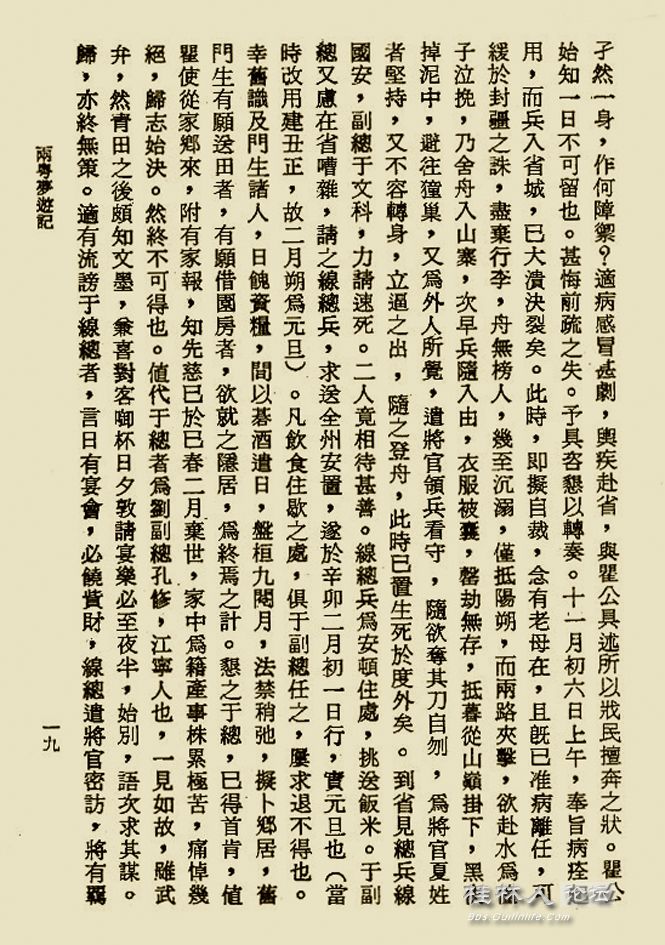 孑然一身，作何障禦？適病感冒甚劇，輿疾赴省，與瞿公具述所以戕民擅奔之狀。瞿公
始知一日不可留也。甚悔前疏之失。予具咨懇以轉奏。十一月初六日上午，奉旨病痊
用，而兵入省城，已大潰決裂矣。此時，卽擬自裁，念有老母在，且旣已准病離任，可
緩於封疆之誅，盡棄行李，舟無榜人，幾至沉溺，僅抵陽朔，而兩路夾擊，欲赴水爲
子泣挽，乃舍舟入山寨，次早兵隨入由，衣服被囊，罄劫無存，抵暮從山巔掛下，黑
掉泥中，避往獞巢，又爲外人所覺，遣將官領兵看守，隨欲奪其刀自刎，爲將官夏姓
者堅持，又不容轉身，立逼之出，隨之登舟，此時已置生死於度外矣。到省見總兵線
國安，副總于文科，力請速死。二人竟相待甚善。線總兵爲安頓住處，挑送飯米。于副
總又慮在省嘈雜，請之線總兵，求送全州安置，遂於辛卯二月初一日行，實元旦也（當
時改用建丑正，故二月朔爲元旦）。凡飲食住歇之處，俱于副總任之，屢求退不得也。
幸舊識及門生諸人，日餽資糧，間以碁酒遣日，盤桓九閱月，法禁稍弛，擬卜鄉居，舊
門生有願送田者，有願借園房者，欲就之隱居，爲終焉之計。懇之于總，已得首肯，値
瞿使從家鄉來，附有家報，知先慈已於巳春二月棄世，家中爲籍產事株累極苦，痛悼幾
絕，歸志始決。然終不可得也。値代于總者爲劉副總孔修，江寧人也，一見如故，雖武
弁，然靑田之後頗知文墨，兼喜對客啣杯日夕敦請宴樂必至夜半，始別，語次求其謀。
歸，亦終無策。適有流謗于線總者，言日有宴會，必饒貲財，線總遣將官密訪，將有羈
兩粤夢遊記
一九
桂林人论坛
Bbs.Guilinlife.com